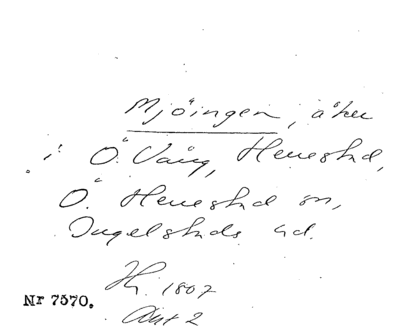 Mjöingen, åker
i Ö. Vång, Herrestad,
Ö. Herrestad sn,
Ingelstads hd.
Hs. 1807
Akt 2
Nr 7570.